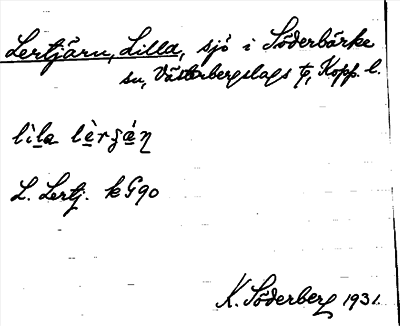 Lertjärn, Lilla, sjö i Söderbärke
sn, Västerbergslags tg, Kopp. l.
lìla lèrʂán
L. Lertj. kG90
K. Söderberg 1931.